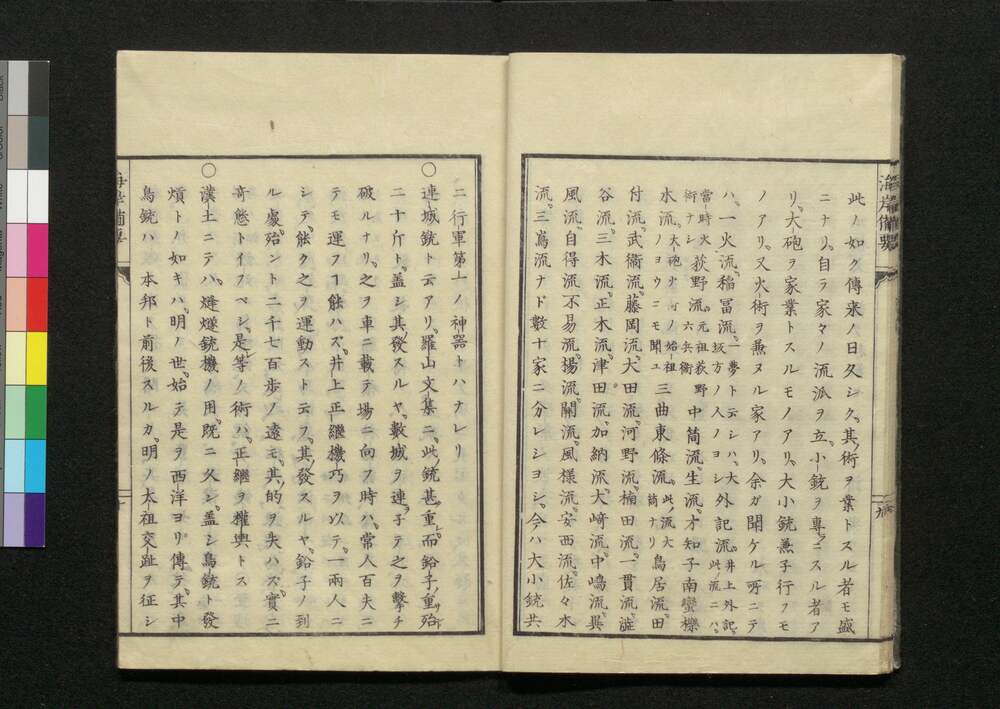 海岸備要
此ノ如ク傳来ノ日久シク其ノ術ヲ業トスル者モ盛
ニナリ自ラ家々ノ流派ヲ立小銃ヲ專ニスル者ア
リ大砲ヲ家業トスルモノアリ大小銃兼子行フモ
ノアリ又火術ヲ兼ヌル家アリ余ガ聞ケル所ニテ
ハ一火流稲冨流一夢ト云シハ大坂方ノ人ノヨシ外記流井上外記此ノ流ニハ
當時大術ナシ荻野流元祖荻野六兵衞中筒流生流才知子南蠻櫟
水流大砲ナドノ始祖ノヨウニモ聞ユ三曲東條流此ノ流大筒ナリ鳥居流田
付流武衞流藤岡流大田流河野流楠田流一貫流澁
谷流三木流正木流津田流加納流大崎流中嶋流異
風流自得流不易流揚流關流風様流安西流佐々木
流三嶌流ナド數十家ニ分レシヨシ今ハ大小銃共
ニ行軍第一ノ神器トハナレリ
○連城銃ト云アリ羅山文集ニ此ノ銃甚重而鉛子ノ重殆ド
二十斤ト盖シ其ノ發スルヤ數城ヲ連子テ之ヲ擊チ
破ルナリ之ヲ車ニ載テ場ニ向フ時ハ常人百夫ニ
テモ運フヿ能ハズ井上正繼機巧ヲ以テ一兩人ニ
シテ能ク之ヲ運動スト云フ其ノ發スルヤ鉛子ノ到
ル處殆ント二千七百歩ノ遠モ其ノ的ヲ失ハズ實ニ
奇態トイフベシ是等ノ術ハ正繼ヲ權輿トス
○漢土ニテハ熢燧銃機ノ用既ニ久シ盖シ鳥銃ト發
熕トノ如キハ明ノ世始テ是ヲ西洋ヨリ傳テ其中
鳥銃ハ 本邦ト前後スルカ明ノ太祖交趾ヲ征シ